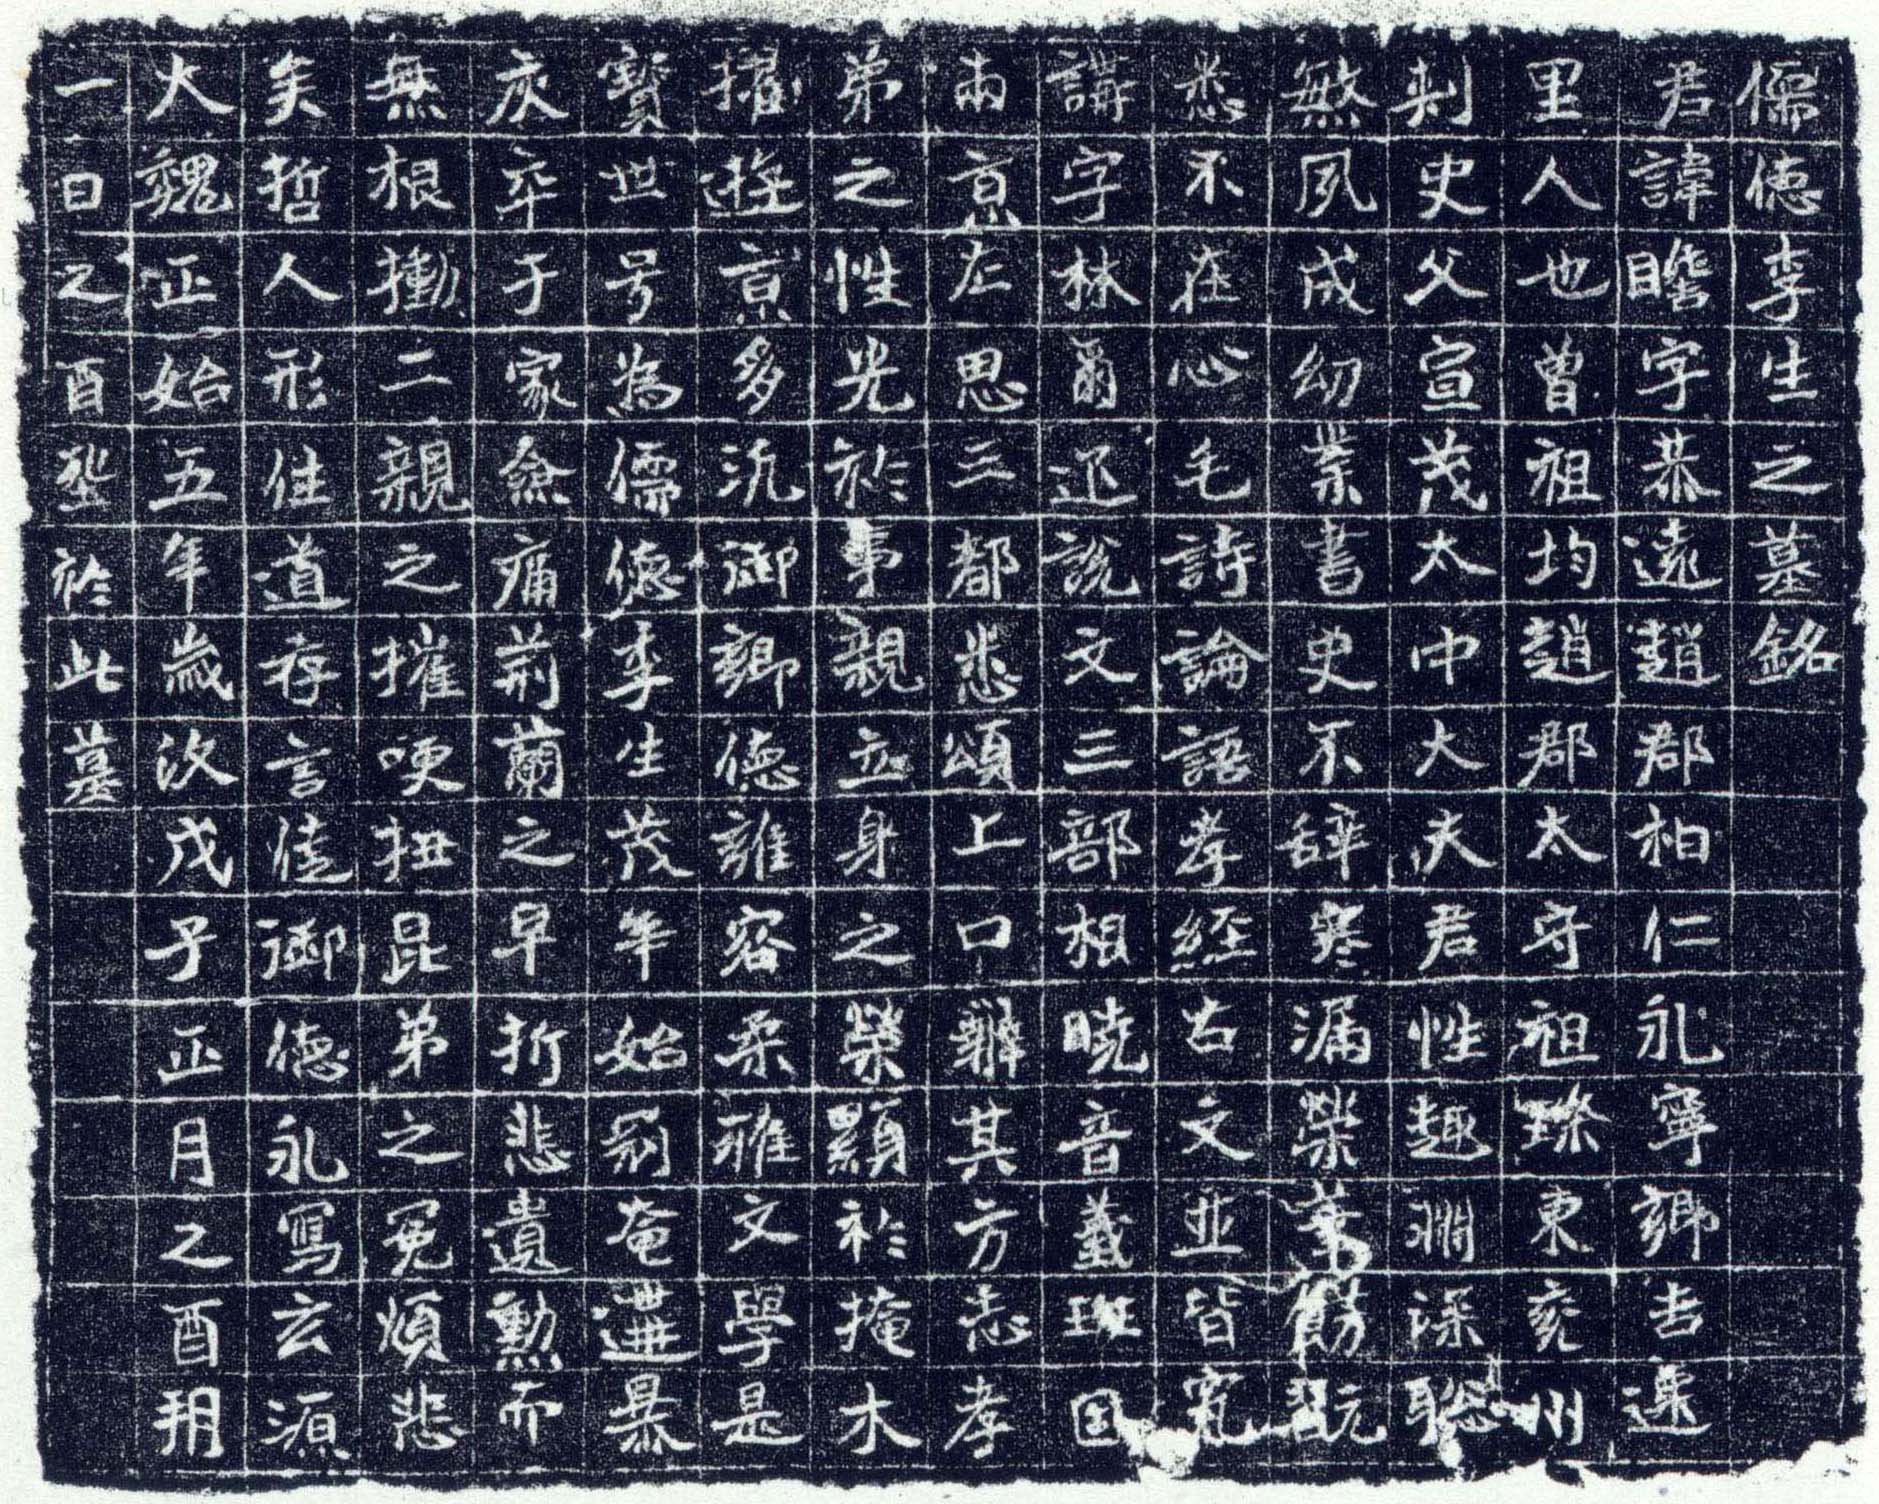 儒德李生之墓銘
君諱瞻字恭遠趙郡柏仁永寧鄉吉遷
里人也曾祖均趙郡太守祖璨東兖州
刺史父宣茂太中大夫君性趣淵深聡
慜夙成幼業書史不辞寒漏榮葉飭翫
悉不在心毛詩論語孝經古文並皆究
講字林爾迊說文三部相曉音義班固
兩京左思三都悉頌上口辭其方志孝
弟之性光於事親立身之榮顯於掩木
擢遊京多汎御鄉德雖容柔雅文學是
寶世号為儒德李生茂年始剏奄遘暴
疾卒于家僉痛荊蘭之早折悲遺勲而
無根慟二親之摧哽扭昆弟之冤煩悲
矣哲人形徂道存言佳御德永寫玄源
大魏正始五年歲次戊子正月之酉朔
一日之酉埊於此墓